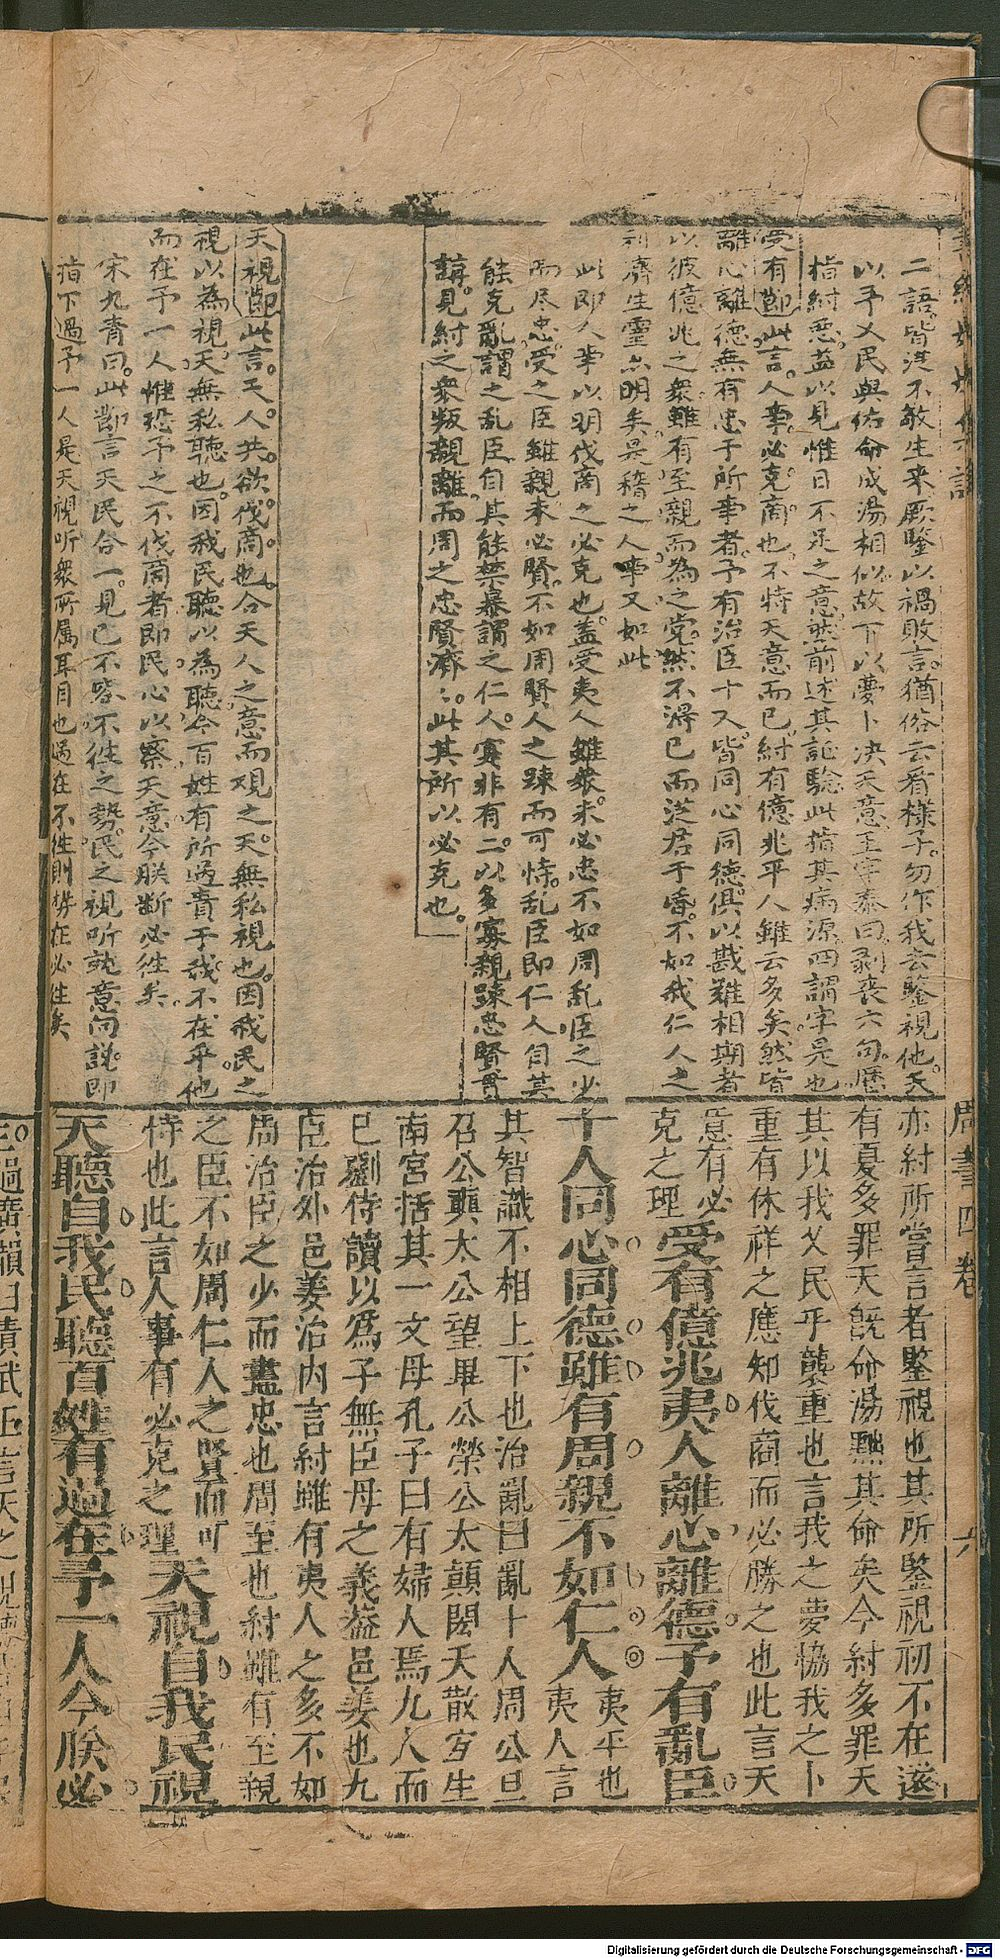 二語皆從不敬生来厥鑒以禍敗言猶俗云看樣子勿作我去鑒視他天
以予乂民與佑命成湯相似故下以夢卜決天意王宇泰曰剥喪六句歷
指紂惡益以見惟日不足之意然前述其証驗此指其病源四謂字是也
受有節此言人事必克商也不特天意而已紂有億兆平人雖云多矣然皆
離心離德無有忠于所事者予有治臣十人皆同心同德俱以戡難相期者
以彼億兆之衆雖有至親而為之党然不得已而從君于昏不如我仁人之
利濟生靈亦明矣是稽之人事又如此
此即人事以明伐商之必克也蓋受夷人雖衆未必忠不如周乱臣之少
而尽忠受之臣雖親未必賢不如周賢人之踈而可恃乱臣即仁人自其
能克亂謂之乱臣自其能禁暴謂之仁人寔非有二以多寡親踈忠賢貫
講見紂之衆叛親離而周之忠賢濟〻此其所以必克也
天視節此言天人共欲伐商也合天人之意而观之天無私視也因我民之
視以為視天無私聽也因我民聽以為聽今百姓有所過責于我不在乎他
而在予一人惟恐予之不伐商者即民心以察天意今朕断必徃矣
宋九青曰此斷言天民合一見已不容不徃之勢民之視听就意向説即
指下過予一人是天視听衆所属耳目也過在不徃則势在必徃矣
周書四卷
六
亦紂所嘗言者鑒視也其所鑒視初不在遠
有夏多罪天既命湯黜其命矣今紂多罪天
其以我乂民乎襲重也言我之夢恊我之卜
重有休祥之應知伐商而必勝之也此言天
意有必
克之理
受有億兆夷人離心離德予有亂臣
十人同心同德雖有周親不如仁人
夷平也
夷人言
其智識不相上下也治亂曰亂十人周公旦
召公奭太公望畢公榮公太顛閎夭散宜生
南宮括其一文母孔子曰有婦人焉九人而
已劉侍讀以爲子無臣母之義益邑姜也九
臣治外邑姜治内言紂雖有夷人之多不如
周治臣之少而盡忠也周至也紂雖有至親
之臣不如周仁人之賢而可
恃也此言人事有必克之理
天視自我民視
天聽自我民聽百姓有過在予一人今朕必